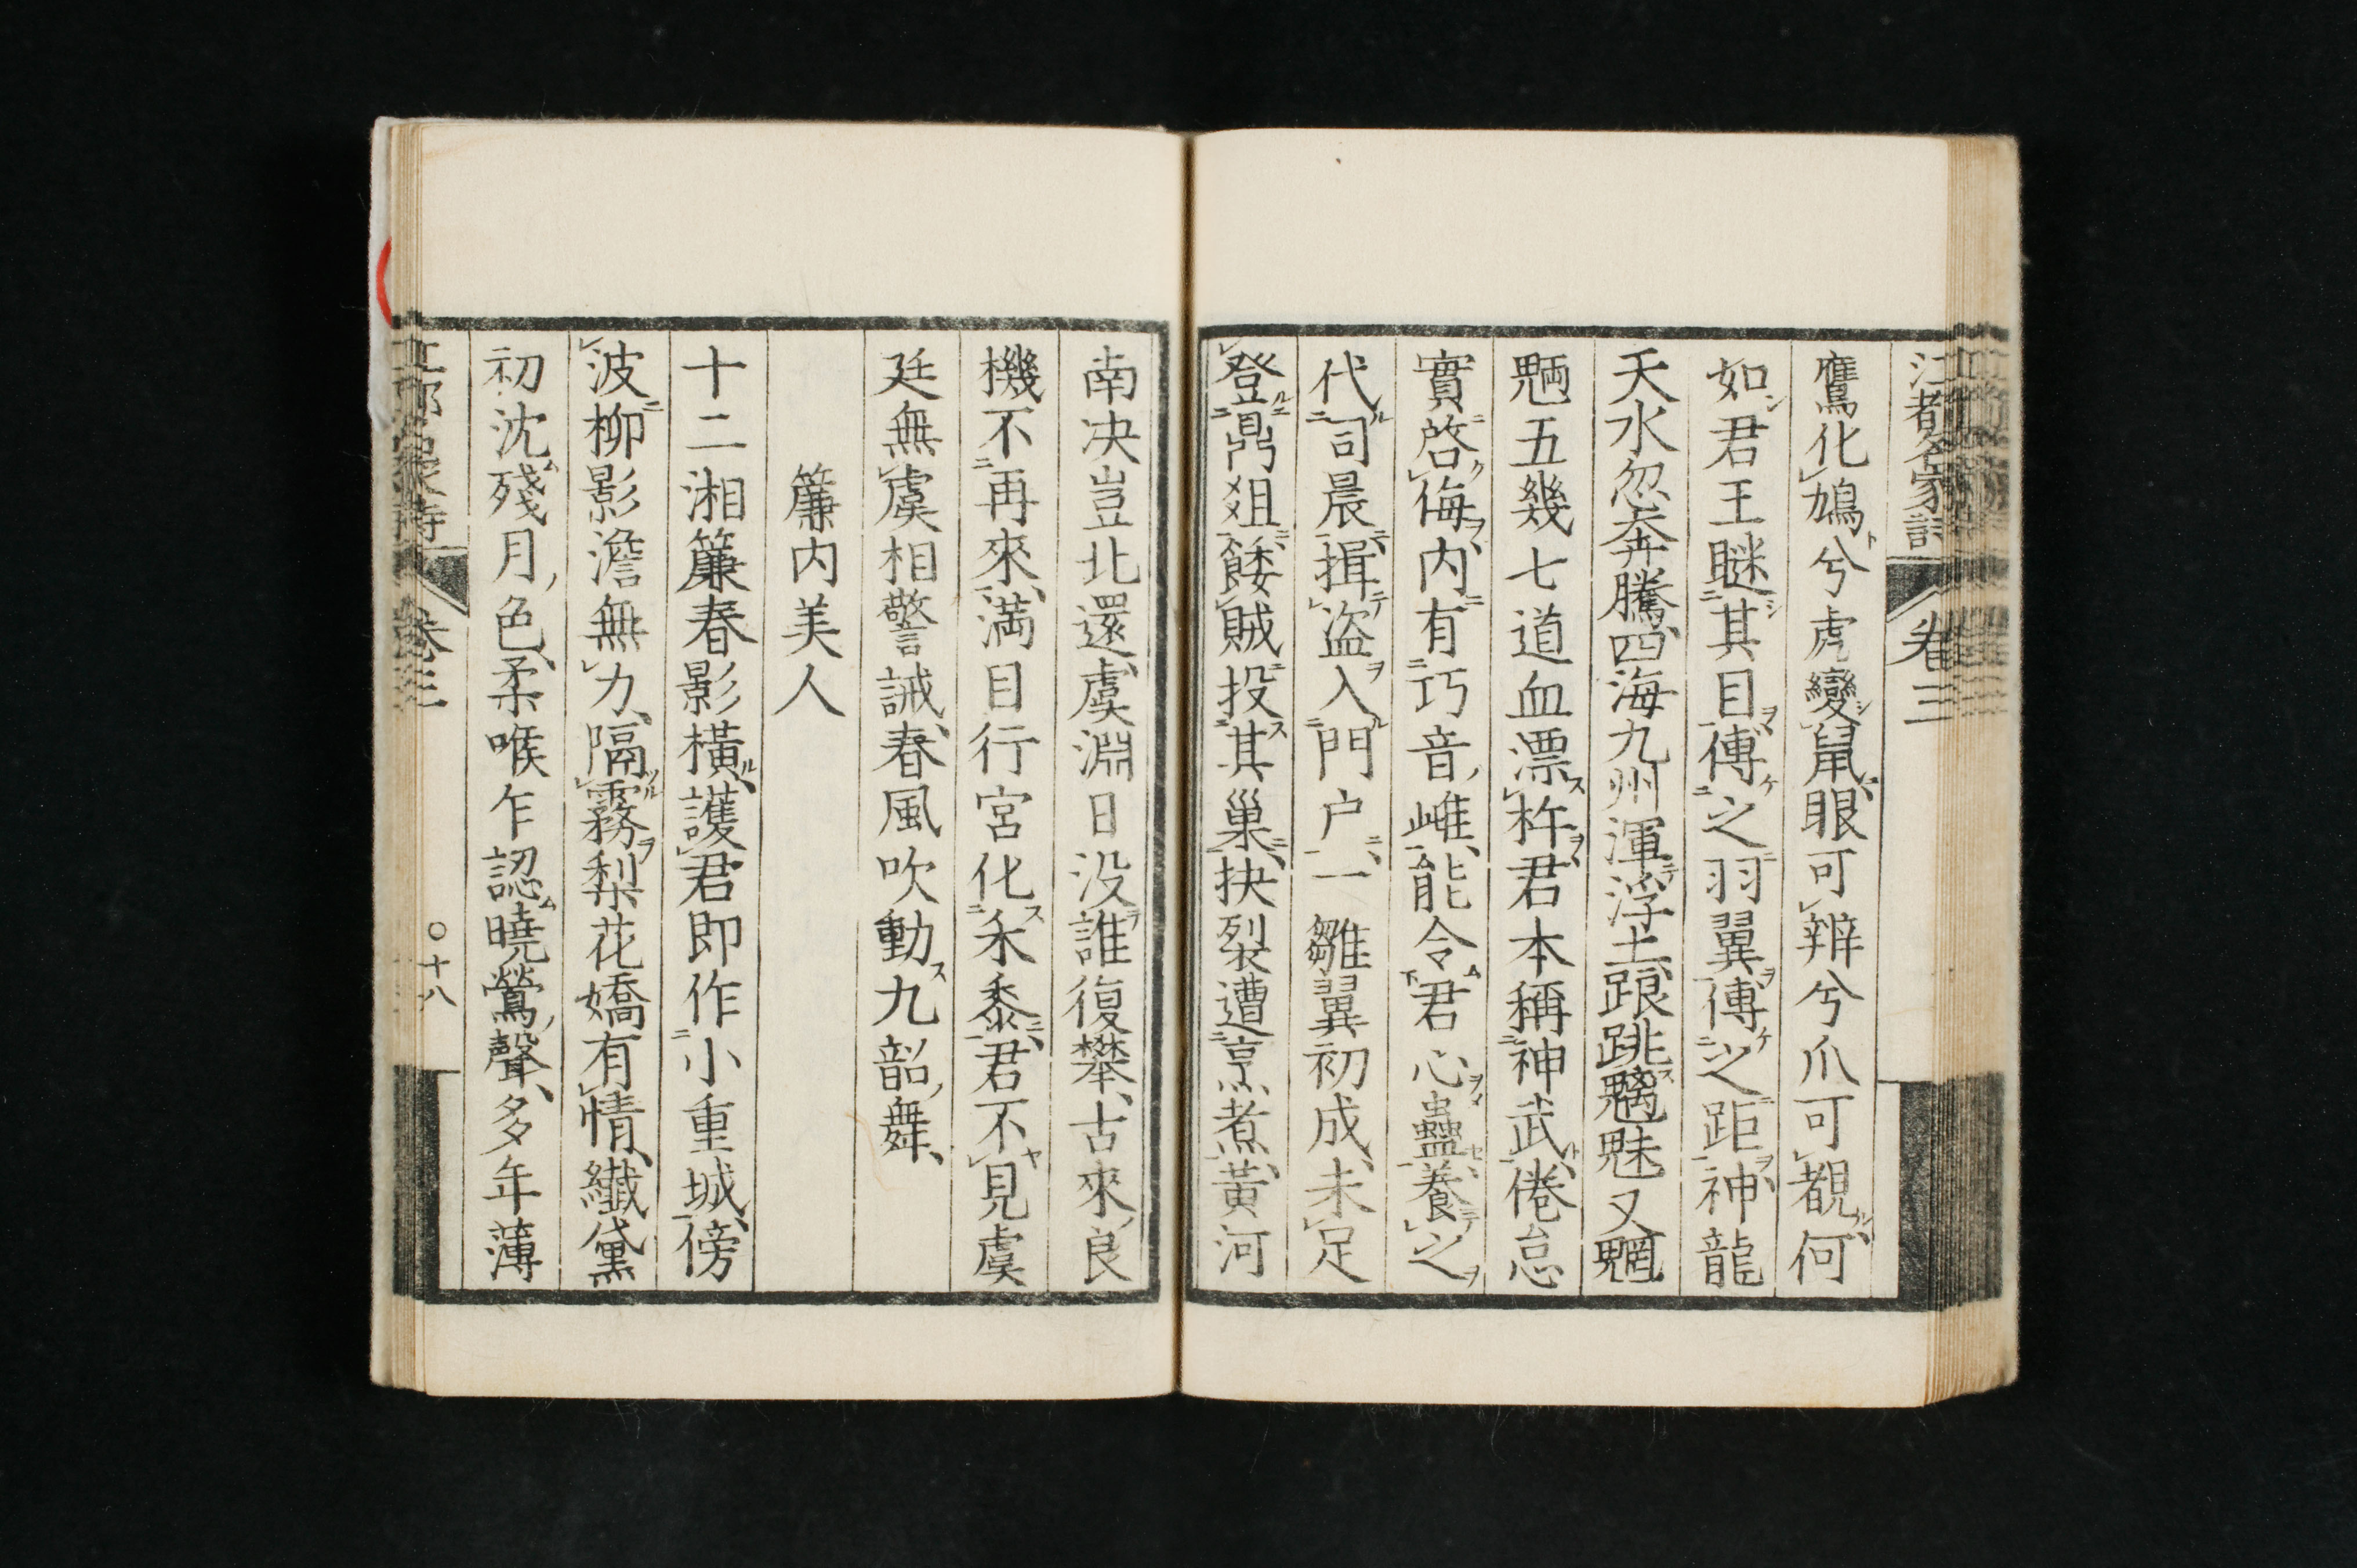 江都名家詩 卷三
鷹化鳩兮虎變鼠眼可辨兮爪可覩何
如君王瞇其目傅之羽翼傅之距神龍
天水忽奔騰四海九州渾浮土踉跳魑魅又魍
魎五幾七道血漂杵君本稱神武倦怠
實啓侮内有巧音雌能令君心蠱養之
代司晨揖盗入門户一雛翼初成未足
登鼎俎餧賊投其巢抉裂遭烹煮黄河
南决豈北還虞淵日没誰復攀古來良
機不再來満目行宮化禾黍君不見虞
廷無虞相警誡春風吹動九韶舞
簾内美人
十二湘簾春影橫護君即作小重城傍
波柳影澹無力隔霧梨花嬌有情纖黛
初沈殘月色柔喉乍認曉鶯聲多年薄
卷三 〇十八